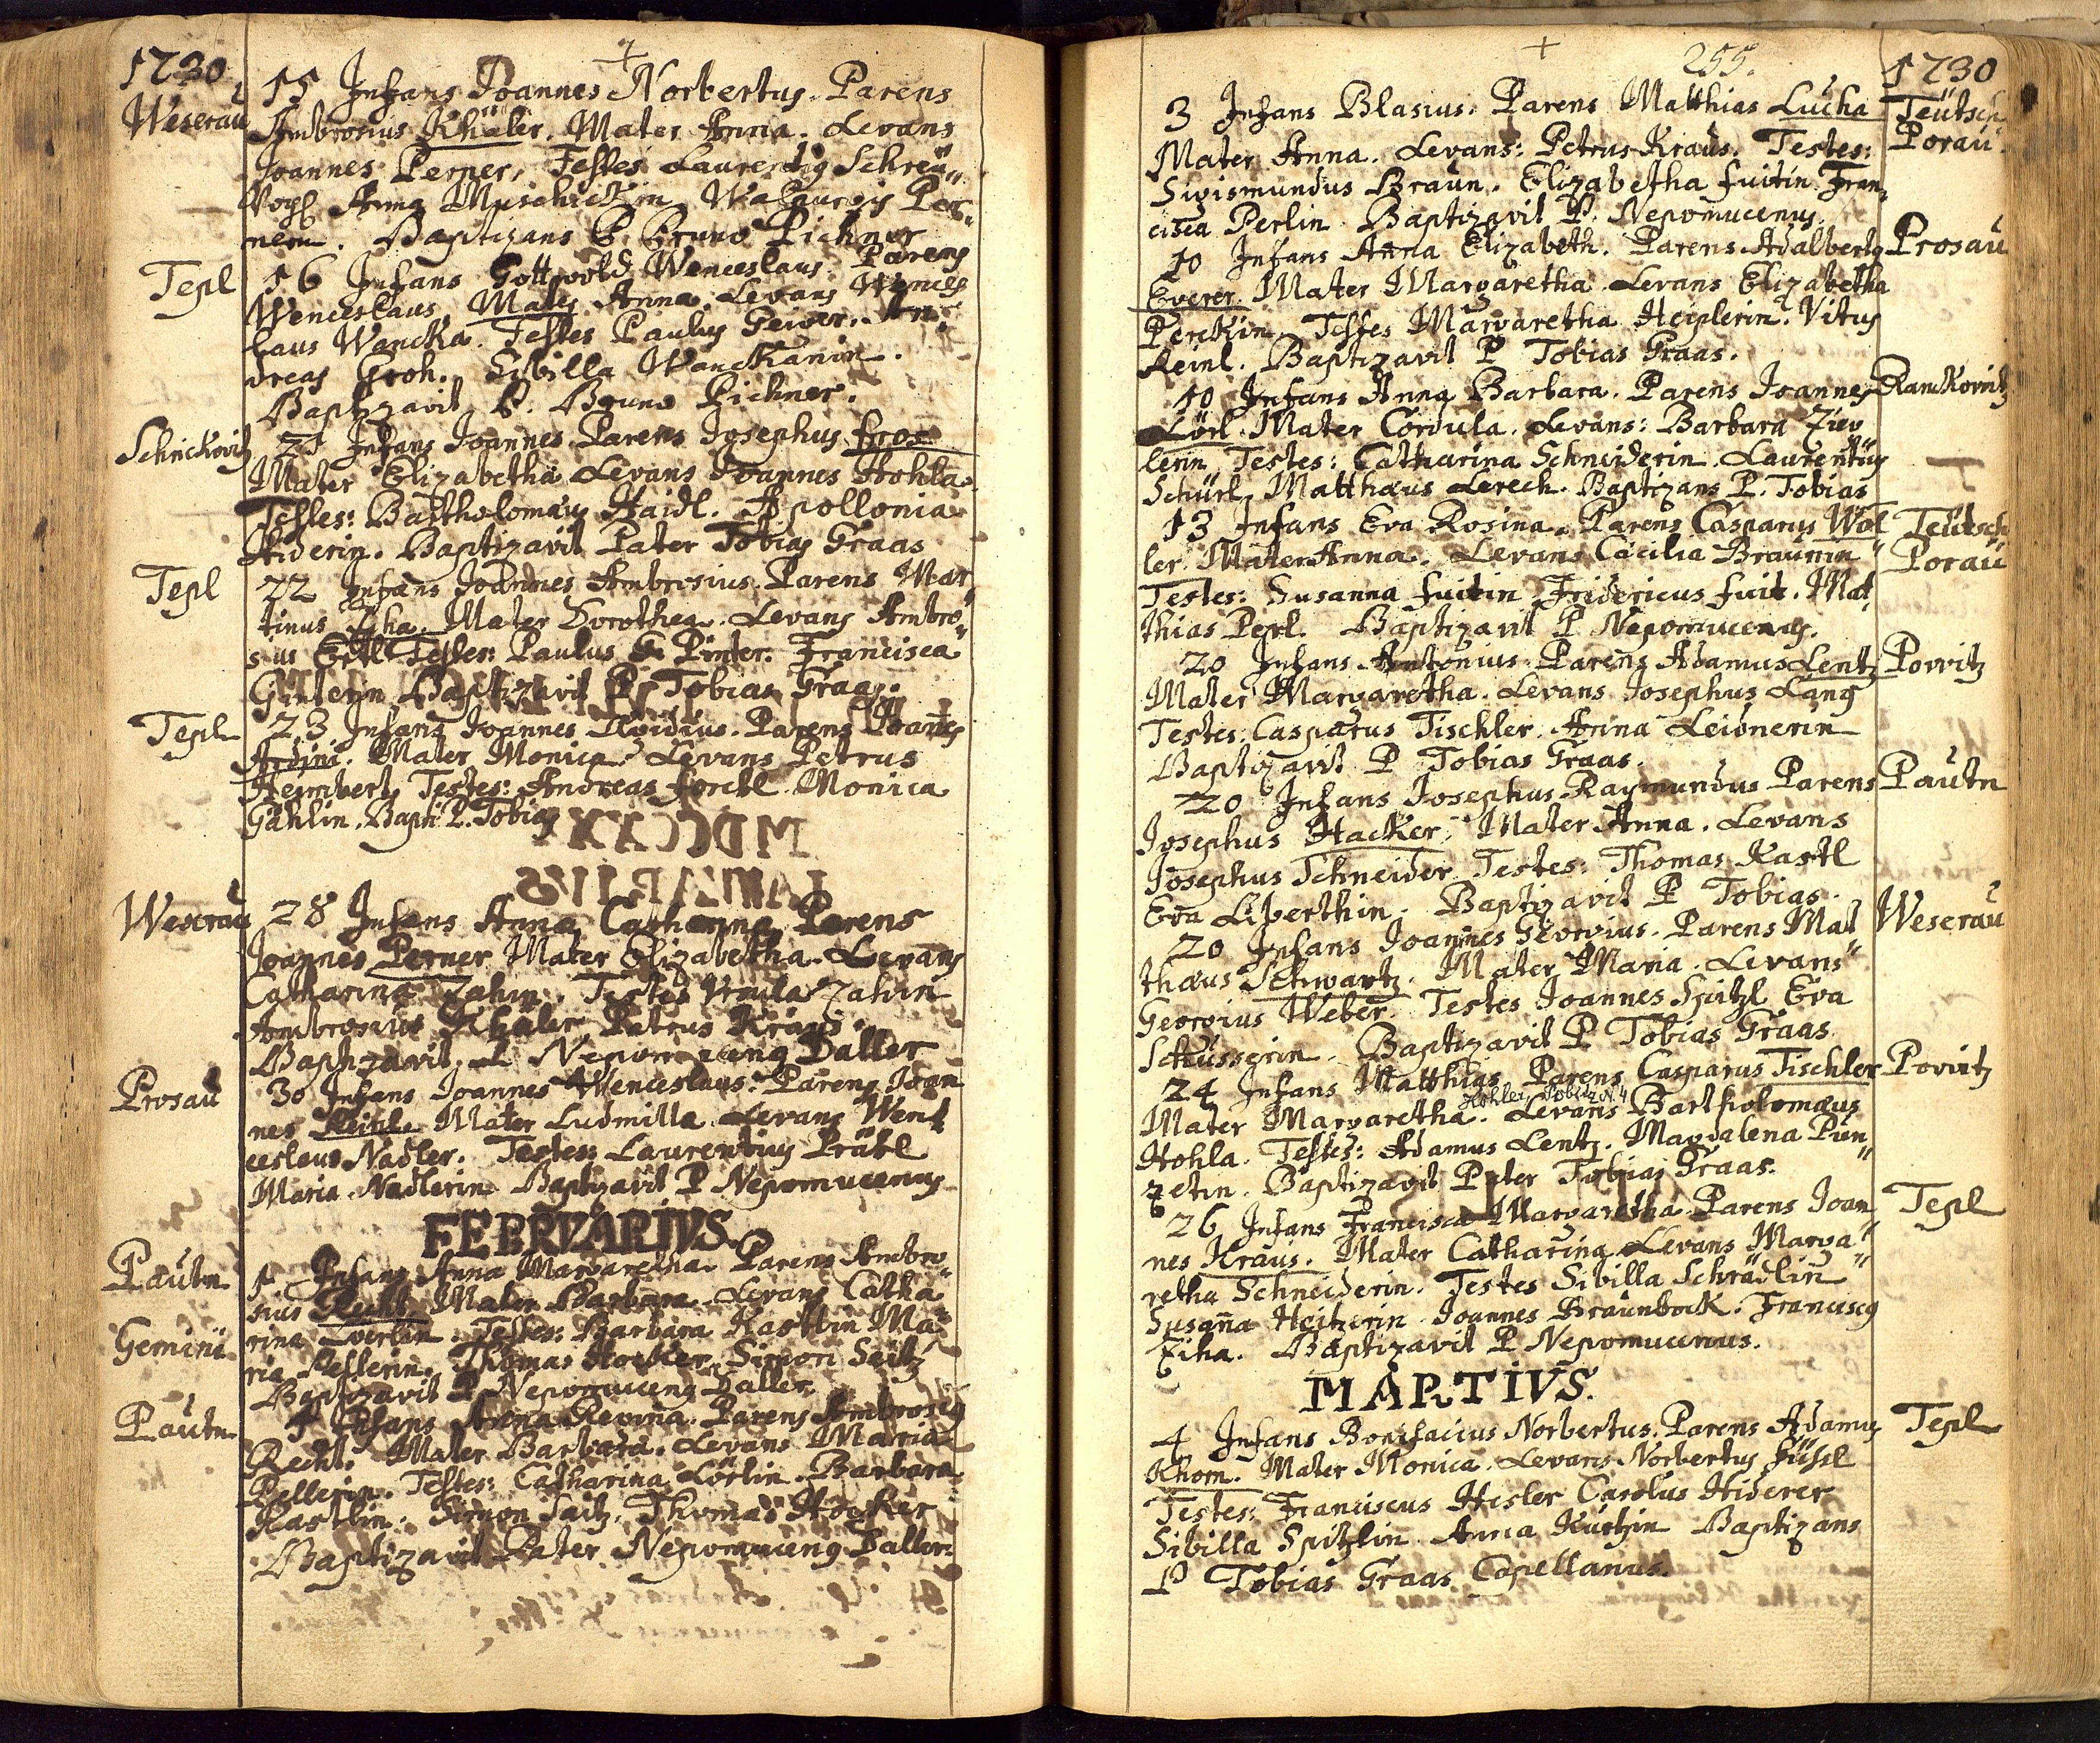 1730
Weserau
15 Infans Joannes Norbertus. Parens
Ambrosius Khäler. Mater Anna. Levans
Joannes Perner, Testes Laurentig Schreü„
Vogl Anna Muschickin Walburgis Per„
nerin. Baptizans P. Bruno Pichner
Tepl
16 Infans Gottvold Wenceslaus. Parens
Wenceslaus Mates Anna. Levans Wences
laus Wancka. Testes Paulus Geiger. An„
dreas Groh. Sibilla Wanckanin.
Baptizavit P. Bruno Pichner.
Schrickovitz
21 Infans Joannes Parens Josephus
Mater Elizabetha Levans Joannes Hohla.
Testes: Bartholomæus Haidl. Apollonia
Hiderin. Baptizavit Pater Tobias Graas
Tepl
22 Infans Joannes Ambrosius. Parens Mar„
tinus Mater Dorothea. Levans Ambro„
sius Ertl Testes: Paulus Pinter. Francisca
Ginterin Baptizavit P. Tobias Graas.
Tepl
23 Infans Joannes Parens Joañes
Mater Monica. Levans Petrus
Hembert, Testes: Andreas forctl. Monica
Gahlin. Bapti P. Tobias
Weserau
28 Infans Anna Catharina Parens
Joannes Perner Mater Elizabetha. Levans
Catharina Zahin. Testes Ursula Zahin
Ambrosius Khäler Petrus Kraus.
Baptizavit P Nepomuceng Daller
Prosau
30 Infans Joannes Wenceslaus. Parens Joan
nes Mater Ludmilla. Levans Went
ceslaus Nadler. Testes: Laurentius Prätl
Maria Nadlerin Baptizavit P Nepomucenus
FEBRVARIVS.
Pautn
1 Infans Anna Margaretha. Parens Ambro„
sius Recht Mater Barbara. Levans Catha
Gemini
rina Lverlin. Testes: Barbara Kastlin Ma„
ria Pellerin. Thomas Hocker Simon Seitz
Baptizavit P Nepomuceng Daller
Pautn
4 Infans Anna Regina. Parens Ambrosig
Recht. Mater Barbara. Levans Maria
Pellerin. Testes: Catharina Lörlin. Barbara
Kastlin. Simon Saitz. Thomas Hocker
Baptizavit Pater Nepomuceng Daller.
255.
1730
3 Infans Blasius. Parens Matthias Lucha
Teütsch
Porau.
Mater Anna. Levans: Petrus Kraus. Testes:
Sigismundus Braun. Elizabetha fuitin Fran„
cisca Perlin. Baptizavit P. Nepomucenus.
10 Infans Anna Elizabeth. Parens Adalbertg
Prosau
Everer. Mater Margaretha. Levans Elizabetha
Perckin Testes Margaretha Heiplerin. Vitus
Reinl. Baptizavit P Tobias Graas.
10 Infans Anna Barbara. Parens Joannes
Ramkovitz
Lörl. Mater Cordula. Levans: Barbara Zieg
lerin Testes: Catharina Schneiderin. Laurentius
Schürl Matthæus Lerech. Baptizans P. Tobias
13 Infans Eva Rosina. Parens Casparus Wol
Teutsch
Porau
ler. Mater Anna. Levans Cæcilia Braunin
Testes: Susanna fuitin Fridericus fuit. Mat
thias Perl. Baptizavit P Nepomucenus.
20 Infans Antonius Parens Adamus Lentz
Povvitz
Mater Margaretha. Levans Josephus Lang
Testes: Casparus Tischler. Anna Leidnerin
Baptizavit P Tobias Graas.
20 Infans Josephus Raymundus Parens
Pautn
Josephus Hacker, Mater Anna. Levans
Josephus Schneider Testes: Thomas Kastl
Eva Liberthin. Baptizavit P Tobias.
20 Infans Joannes Georgius. Parens Mat
Weserau
thæus Schwartz. Mater Maria. Levans
Georgius Weber. Testes Joannes Spitzl Eva
Scheusserin. Baptizavit P Tobias Graas.
24 Infans Matthias Parens Casparus Tischler
Povvitz
Hohler Pobitz N.4
Mater Margaretha. Levans Bartholomæus
Hohla. Testes: Adamus Lentz. Magdalena Pün„
zetin. Baptizavit Pater Tobias Graas.
26 Infans Francisca Margaretha Parens Joan
Tepl
nes Kraus. Mater Catharina Levans Marga„
retha Schneiderin. Testes Sibilla Schrädlin
Susaña Heitzerin Joannes Braunbock. Franciscg
Ziha. Baptizavit P Nepomucenus.
MARTIVS.
4 Infans Bonifacius Norbertus. Parens Adamus
Tepl
Khom. Mater Monica. Levans Norbertus Füssl
Testes: Franciscus Hesler Carolus Hiderer
Sibilla Spitzlin. Anna Kutzin Baptizans
P Tobias Graas Capellanus.